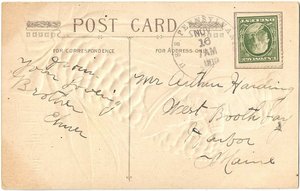 POST CARD
FOR CORRESPONDENCE
FOR ADDRESS ONLY
PENNSYLVANIA
NOV
16
AM
Your loving
Brother
Elmer
Mr Arthur Harding
West Boothbay
Harbor
Maine